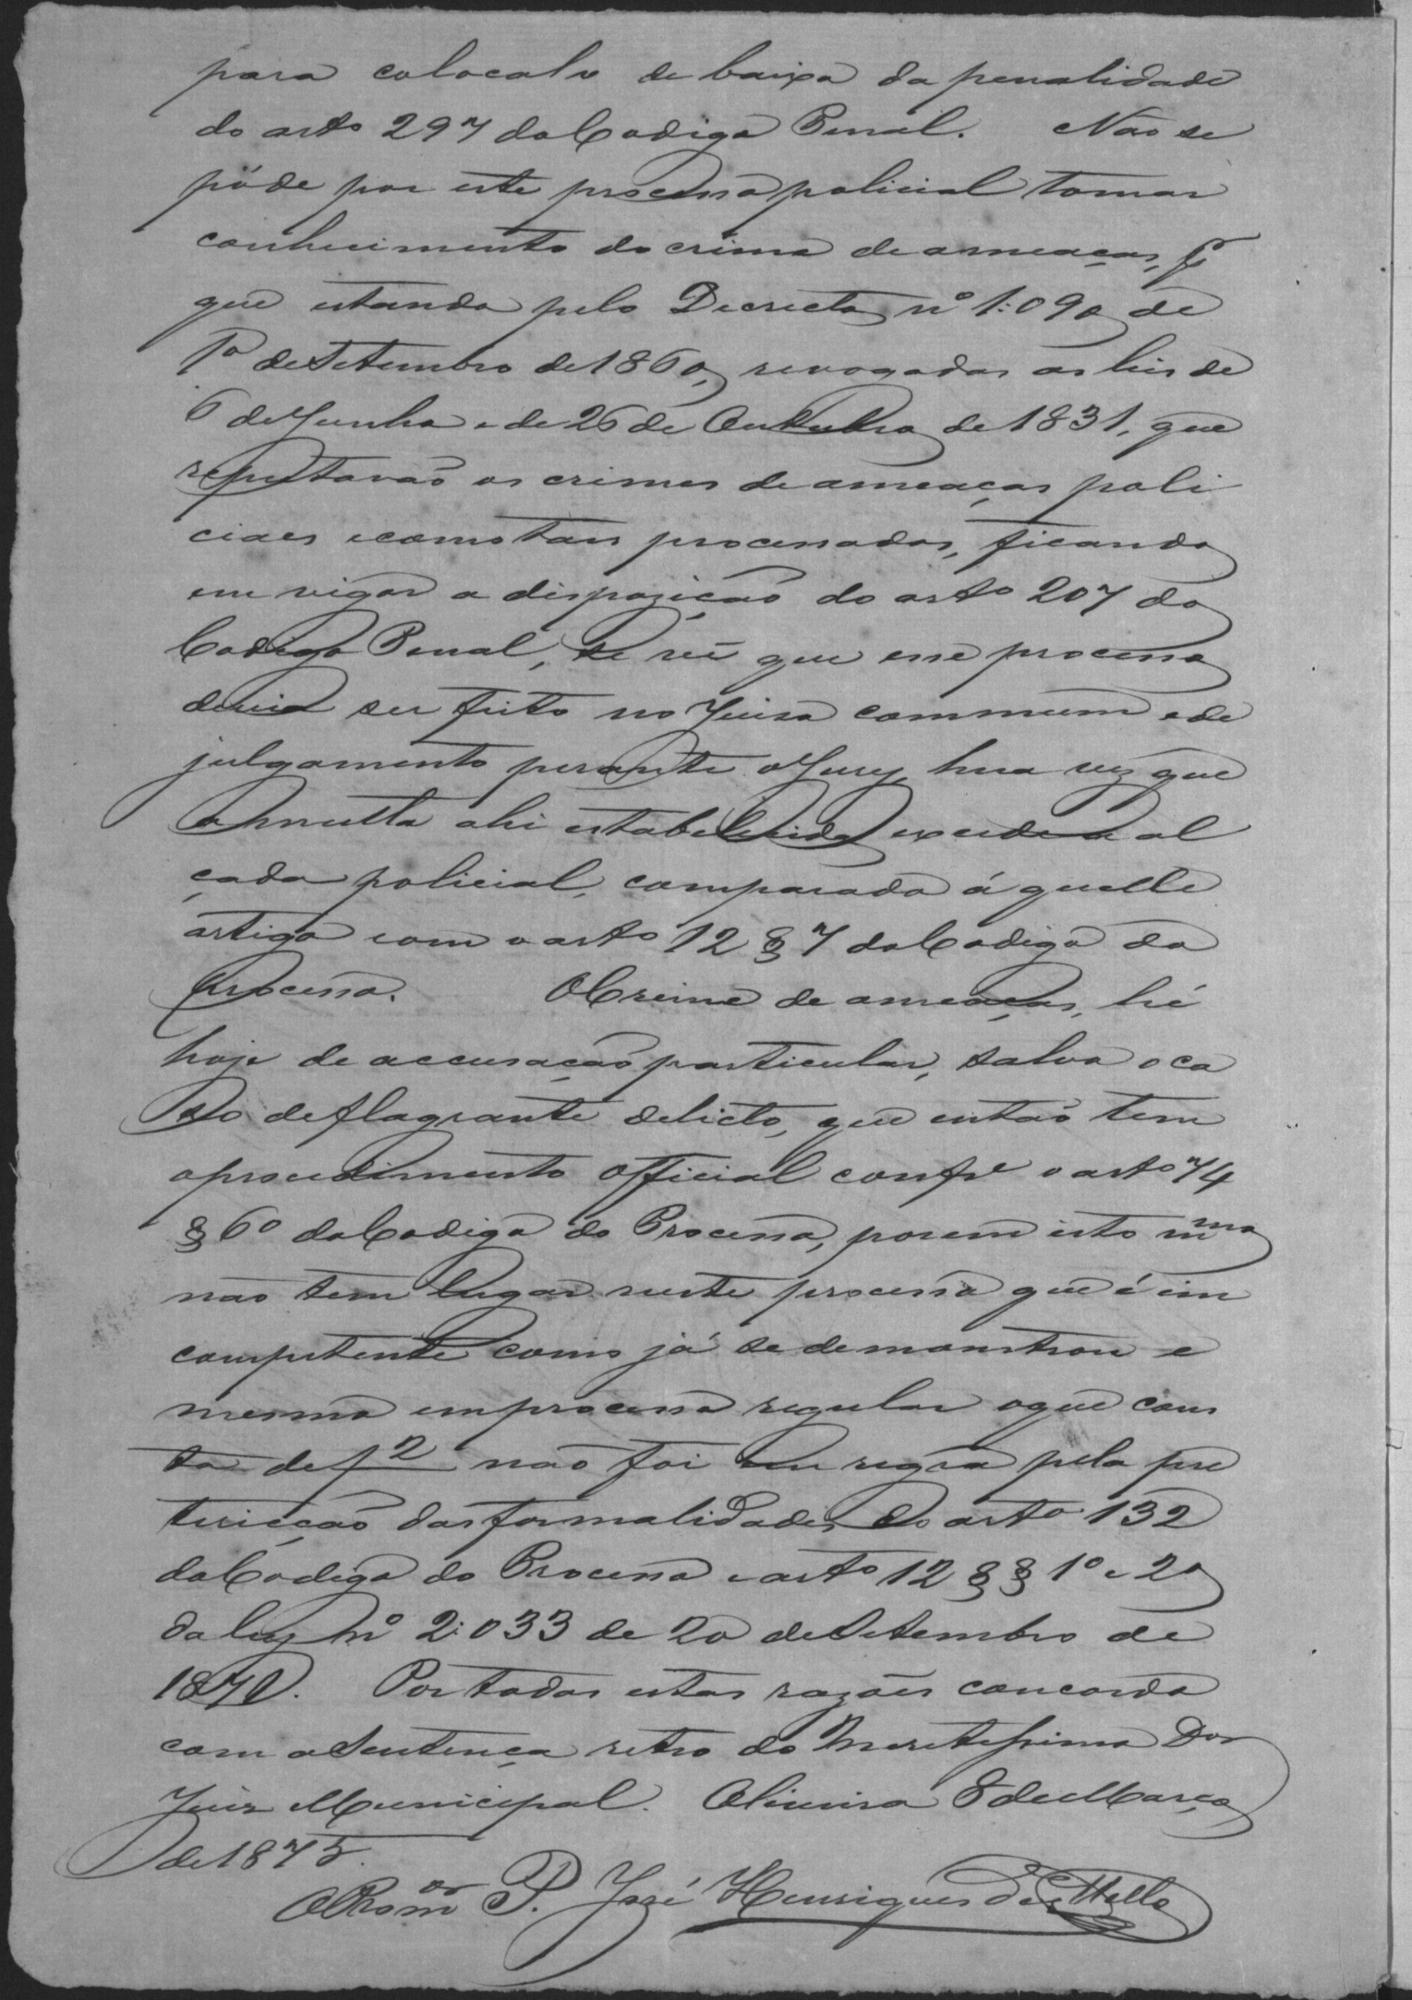 para colocalo de baixo da penalidade
do artº 297 do Codigo Penal. Não se
póde por este processo policial tomar
conhecimento do crime de ameaças, p
que estando pelo Decreto nº 1:090 de
1º de Setembro de 1860, revogadas as leis de
6 de Junho e de 26 de Outubro de 1831, que
reputavão os crimes de ameaças poli
ciaes e como taes processados, ficando
em vigor a dispozição do artº 207 do
Codigo Penal, se vê que esse processo
devia ser feito no Juiso commum e de
julgamento perante o Jury, hua vez que
a multa ahi estabelecida excede a al
çada policial, comparado á quelle
artigo com o artº 12 § 7 do Codigo do
Processo. O Crime de ameaças, hé
hoje de accusação particular, salvo o ca
so de flagrante delicto, que então tem
o procedimento official confe o artº 74
§ 6º do Codigo do Processo, porem isto mmo
não tem lugar neste processo que é in
competente como já se demonstrou e
mesmo em processo regular o que cons
ta de f 2 não foi em regra pela pre
terição das formalidades do artº 132
do Codigo do Processo e artº 12 §§ 1º e 2º
da ley nº 2:033 de 20 de Setembro de
1871. Por todas estas razões concordo
com a Sentença retro do Meretissimo Dor
Juiz Municipal. Oliveira 8 de Março
de 1875.
O Promor P. José Henriques de Mello